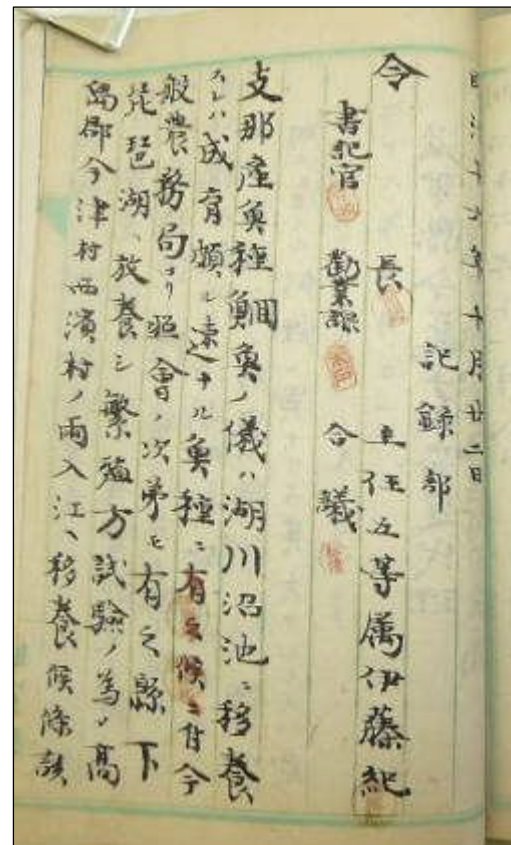 明治十六年十月廿二日
記録部
令 長 主任五等属伊藤紀
書記官 勧業課 合議
支那産魚種鯝魚ノ儀ハ湖川沼池ニ移養
スレハ成育頗ル速ナル魚種ニ有之候ニ付今
般農務局ヨリ照会ノ次第モ有之縣下
琵琶湖ヘ放養シ繁殖方試験ノ為メ高
島郡今津村西濱村ノ両入江ヘ移養候條該